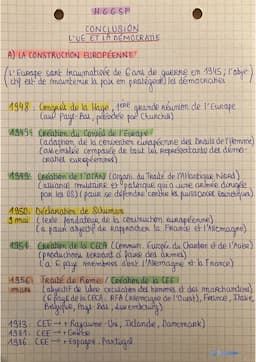 HGGSP
CONCLUSION
L'UE ET LA DÉMOCRATIE
A) LA CONSTRUCTION EUROPÉENNE
(L'Europe sort traumatisée de 6 ans de guerre en 1945 ; l'obje-
ctif est de maintenir la paix en protégeant les démocraties
1948 Congrès de la Haye, 1ère grande réunion de l'Europe
(aux Pays-Bas, présidée par Churchill)
1949 Création du Conseil de l'Europe
(adoption de la convention européenne des Droits de l'Homme)
(assemblée composée de tout les représentants des démo-
craties européennes)
1949 Création de l'OTAN (Organi. du Traité de l'Atlantique Nord)
(alliance militaire et politique qui a une armée dirigée
par les US) (pour se défendre contre la puissance soviétique)
1950 Déclaration de Schuman
9 mai (texte fondateur de la construction européenne)
(a pour objectif de rapprocher la France et l'Allemagne)
1951 Création de la CECA (Commun. Europé. du Charbon et de l'Acier)
(productions servant à faire des armes)
(a 6 pays membres dont l'Allemagne et la France)
Traité de Rome / Création de la CEE
mars (objectif de libre circulation des hommes et des marchandises)
(6 pays de la CECA : RFA (Allemagne de l'Ouest), France, Italie,
Belgique, Pays-Bas, Luxembourg)
1973 CEE → + Royaume-Uni, Irlande, Danemark)
1981 CEE → + Grèce
1986 CEE → + Espagne, Portugal